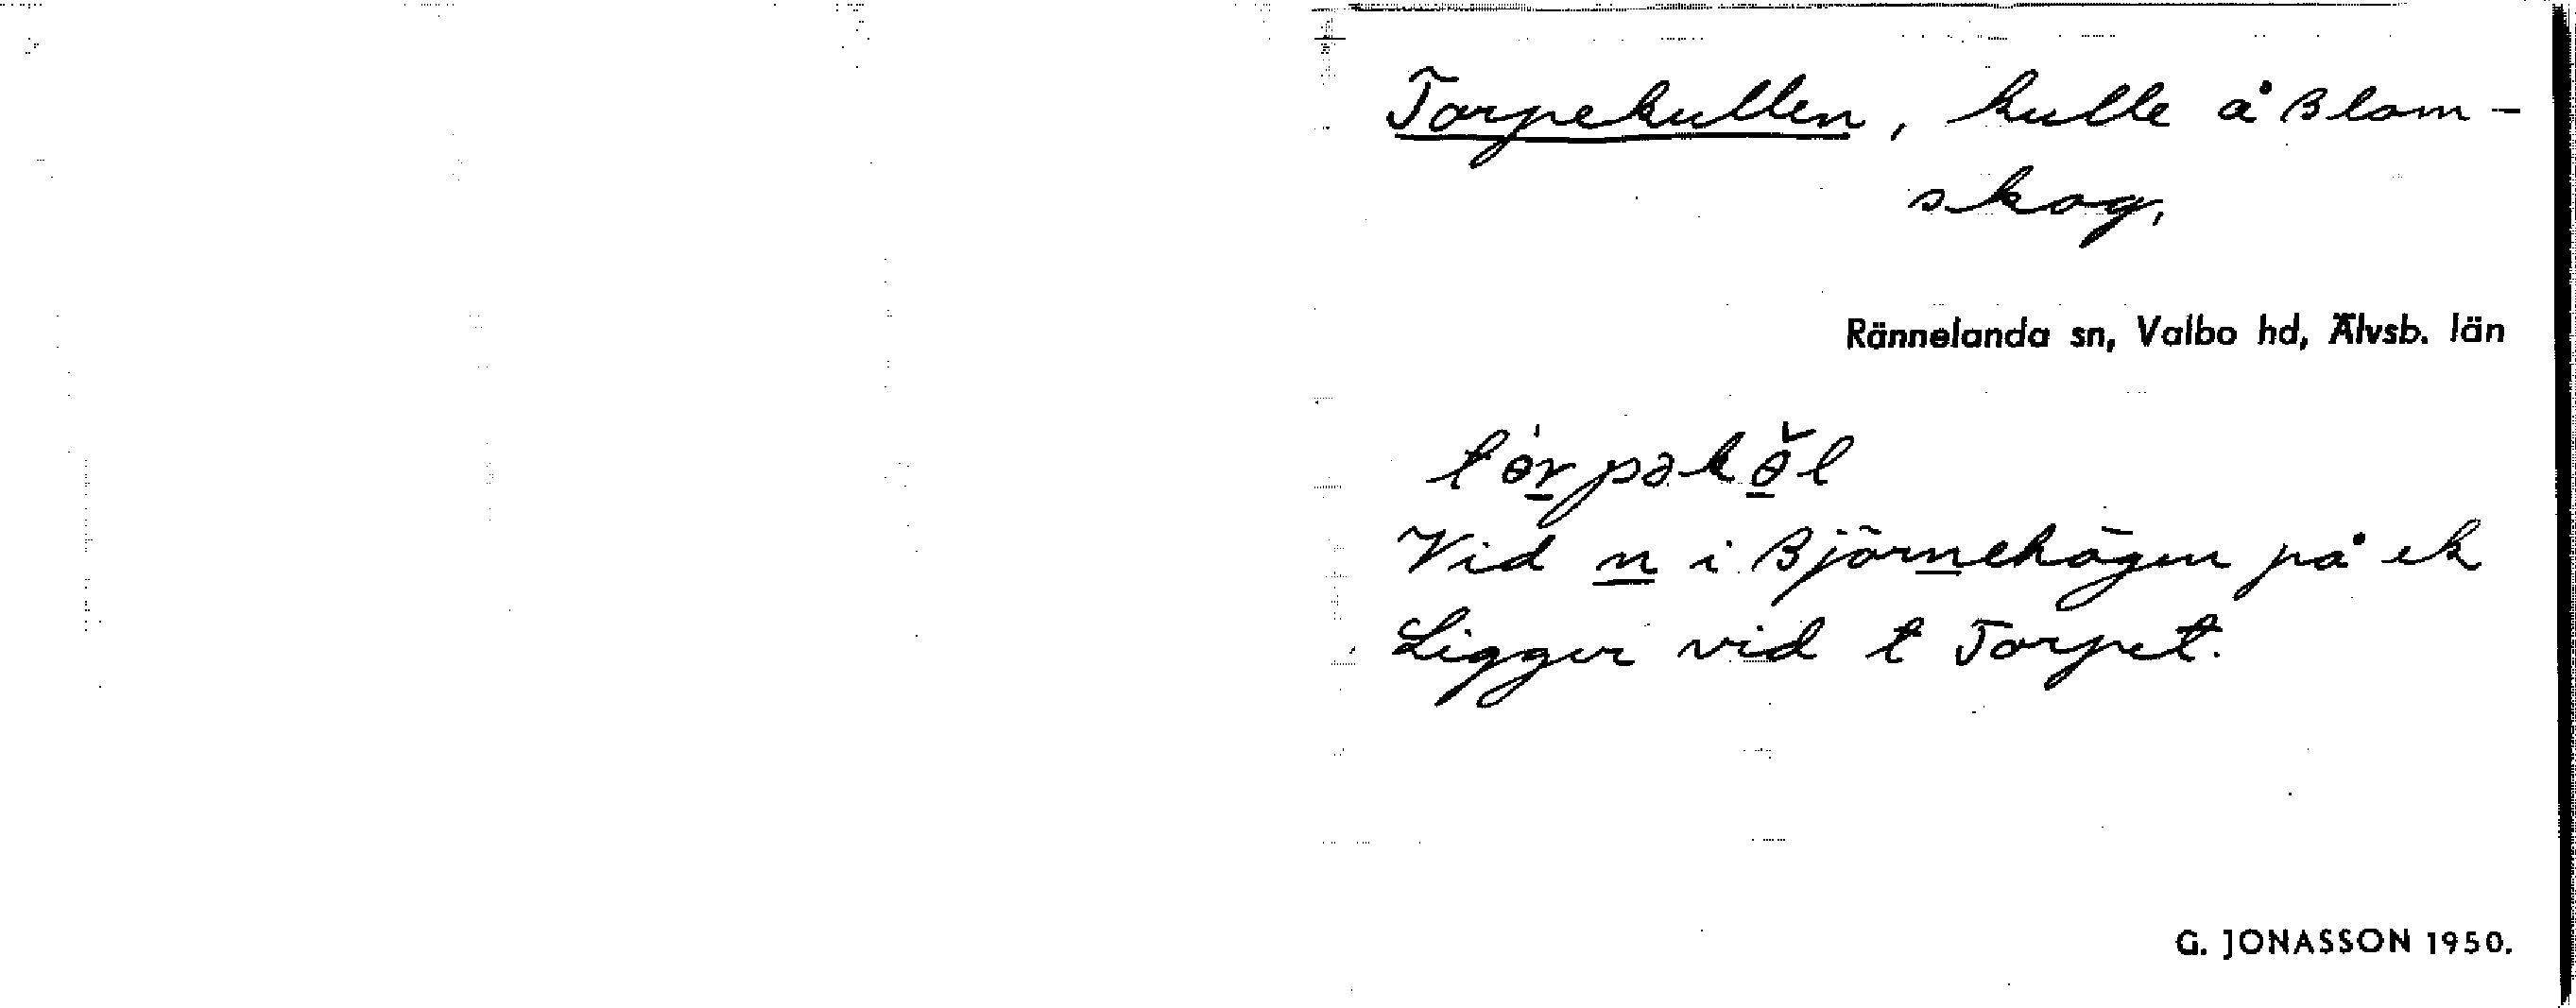 Torpekullen, kulle å Blom-
skog,
Rännelanda sn, Valbo hd, Älvsb. län
tɵ̀rpəkɵ̆l
Vid n i Björnehögen på ek
Ligger vid t Torpet.
G. JONASSON 1950.